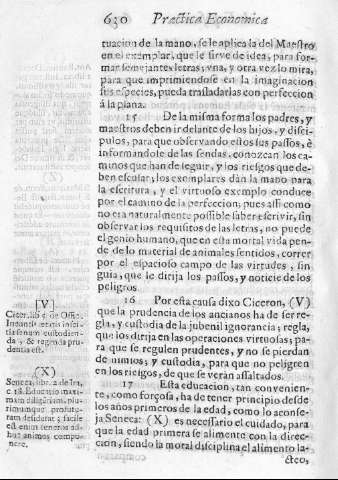 630 Practica Economica
tuacion de la mano, se le aplica la del Maestro
en el exemplar, que le sirve de idea, para for-
mar semejantes letras, vna, y otra vez lo mira,
para que imprimiendose en la imaginacion
sus especies, pueda trasladarlas con perfeccion
á la plana.
15 De la misma forma los padres, y
maestros deben ir delante de los hijos, y disci-
pulos, para que observando estos sus passos, è
informandole de las sendas, conozcan los ca-
minos que han de seguir, y los riesgos que de-
ben escusar, los exemplares dàn la mano para
la escritura, y el virtuoso exemplo conduce
por el camino de la perfeccion, pues assi como
no era naturalmente possible saber escrivir, sin
observar los requisitos de las letras, no puede
el genio humano, que en esta mortal vida pen-
de de lo material de animales sentidos, correr
por el espacioso campo de las virtudes, sin
guia, que le dirija los passos, y noticie de los
peligros
16 Por esta causa dixo Ciceron, (V)
que la prudencia de los ancianos ha de ser re-
gla, y custodia de la jubenil ignorancia; regla,
que los dirija en las operaciones virtuosas; pa-
ra que se regulen prudentes, y no se pierdan
de nimios; y custodia, para que no peligren
en los riesgos, de que se veràn assaltados.
17 Esta educacion, tan convenien-
te, como forçosa, ha de tener principio desde
los años primeros de la edad, como lo aconse-
ja Seneca: (X) es necessario el cuidado, para
que la edad primera se alimente con la direc-
cion, siendo la moral disciplina el alimento la-
cteo,
[V]
Cicer. lib. de Offic.
Ineuntis ætatis insci-
tia senum custodien-
da, & regenda pru-
dentia est.
(X)
Seneca, libr. 2. de Ira,
c. 18. Educatio maxi-
mam diligentiam, plu-
rimumque profutu-
ram desiderat; facile
est enim teneros ad-
huc animos compo-
nere.